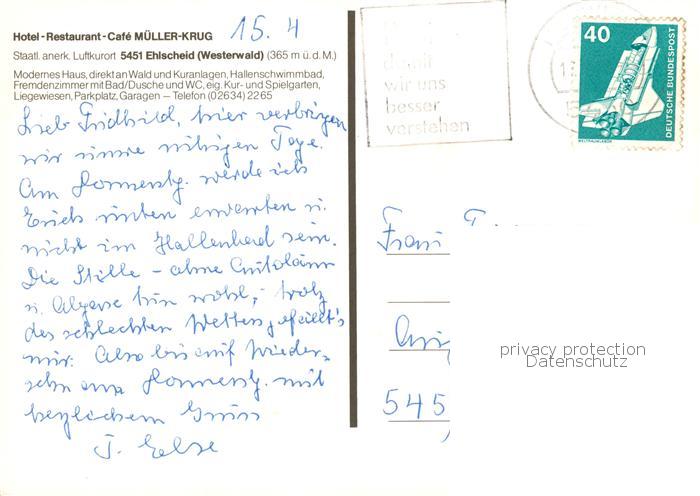 Hotel-Restaurant-Café MÜLLER-KRUG
15. 4
Staatl. anerk. Luftkurort 5451 Ehlscheid (Westerwald) (365 m ü. d. M.)
Modernes Haus, direkt an Wald und Kuranlagen, Hallenschwimmbad,
Fremdenzimmer mit Bad/Dusche und WC, eig. Kur- und Spielgarten,
Liegewiesen, Parkplatz, Garagen – Telefon (02634) 2265
Lieb Fridhild, hier verbringen
wir unsre ruhigen Tage.
Am Donnerstg. werde ich
Euch unten erwarten u.
nicht im Hallenbad sein.
Die Stille – ohne Autolärm
u. Abgase tun wohl, trotz
des schlechten Wetters gefällt's
mir. Also bis auf Wieder-
sehn am Donnerstg. mit
herzlichem Gruss
T. Else
damit
wir uns
besser
verstehen
40
DEUTSCHE BUNDESPOST
WELTRAUMLABOR
Frau
545
privacy protection
Datenschutz